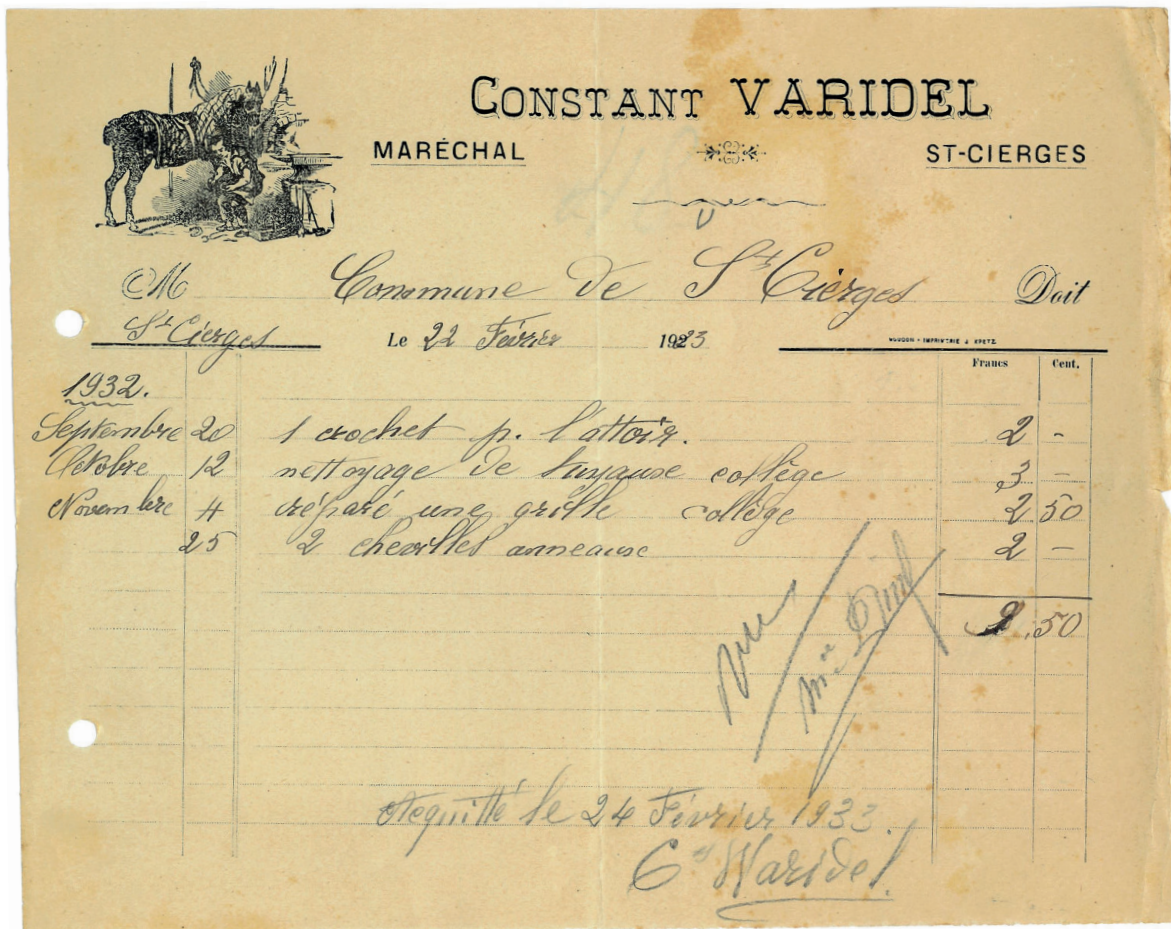 CONSTANT VARIDEL
MARÉCHAL ST-CIERGES
M Commune de St Cierges Doit
St Cierges Le 22 Février 1933
MOUDON - IMPRIMERIE J. KRETZ
Francs Cent.
1932.
Septembre 20 1 crochet p. l'attoir. 2 -
Octobre 12 nettoyage de tuyaux collège 3 -
Novembre 4 réparé une grille collège 2 50
25 2 chevilles anneaux 2 -
9.50
vu
Acquitté le 24 Février 1933.
Ct Varidel